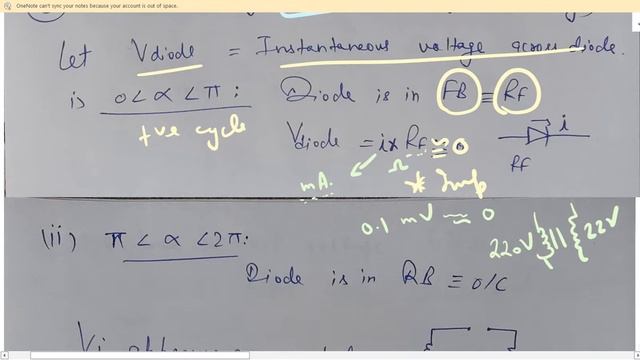 OneNote can't sync your notes because your account is out of space.
Let Vdiode = Instantaneous voltage across diode.
is 0<α<π: Diode is in FB ≡ Rf
+ve cycle
Vdiode = i× Rf ≅ 0
i
Rf
mA. Ω * Imp
0.1 mV ≈ 0
220V 22V
(ii) π<α<2π:
Diode is in RB ≡ O/C